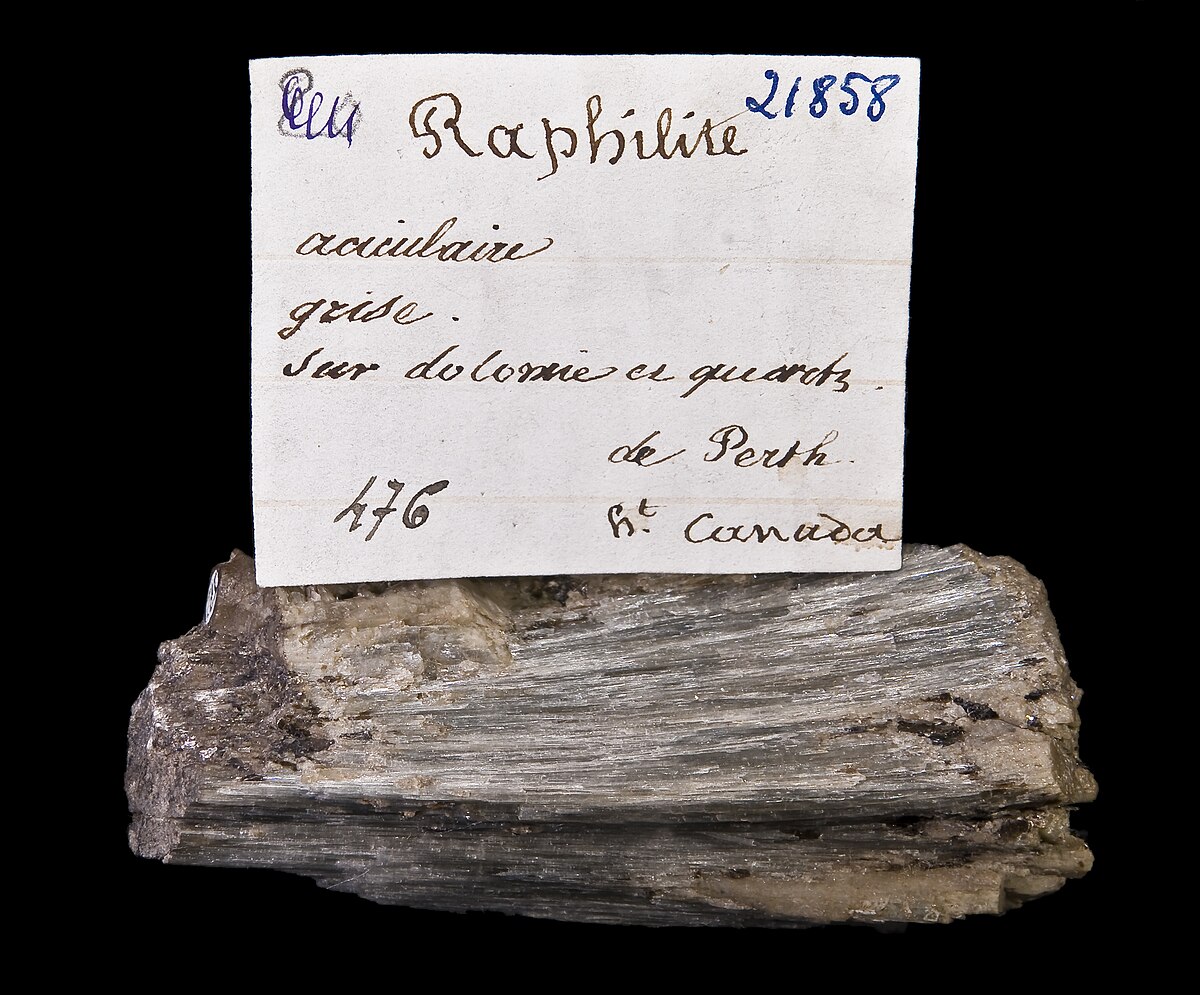 21858
Raphilite
aciculaire
grise.
sur dolomie et quartz.
de Perth
476
ht Canada